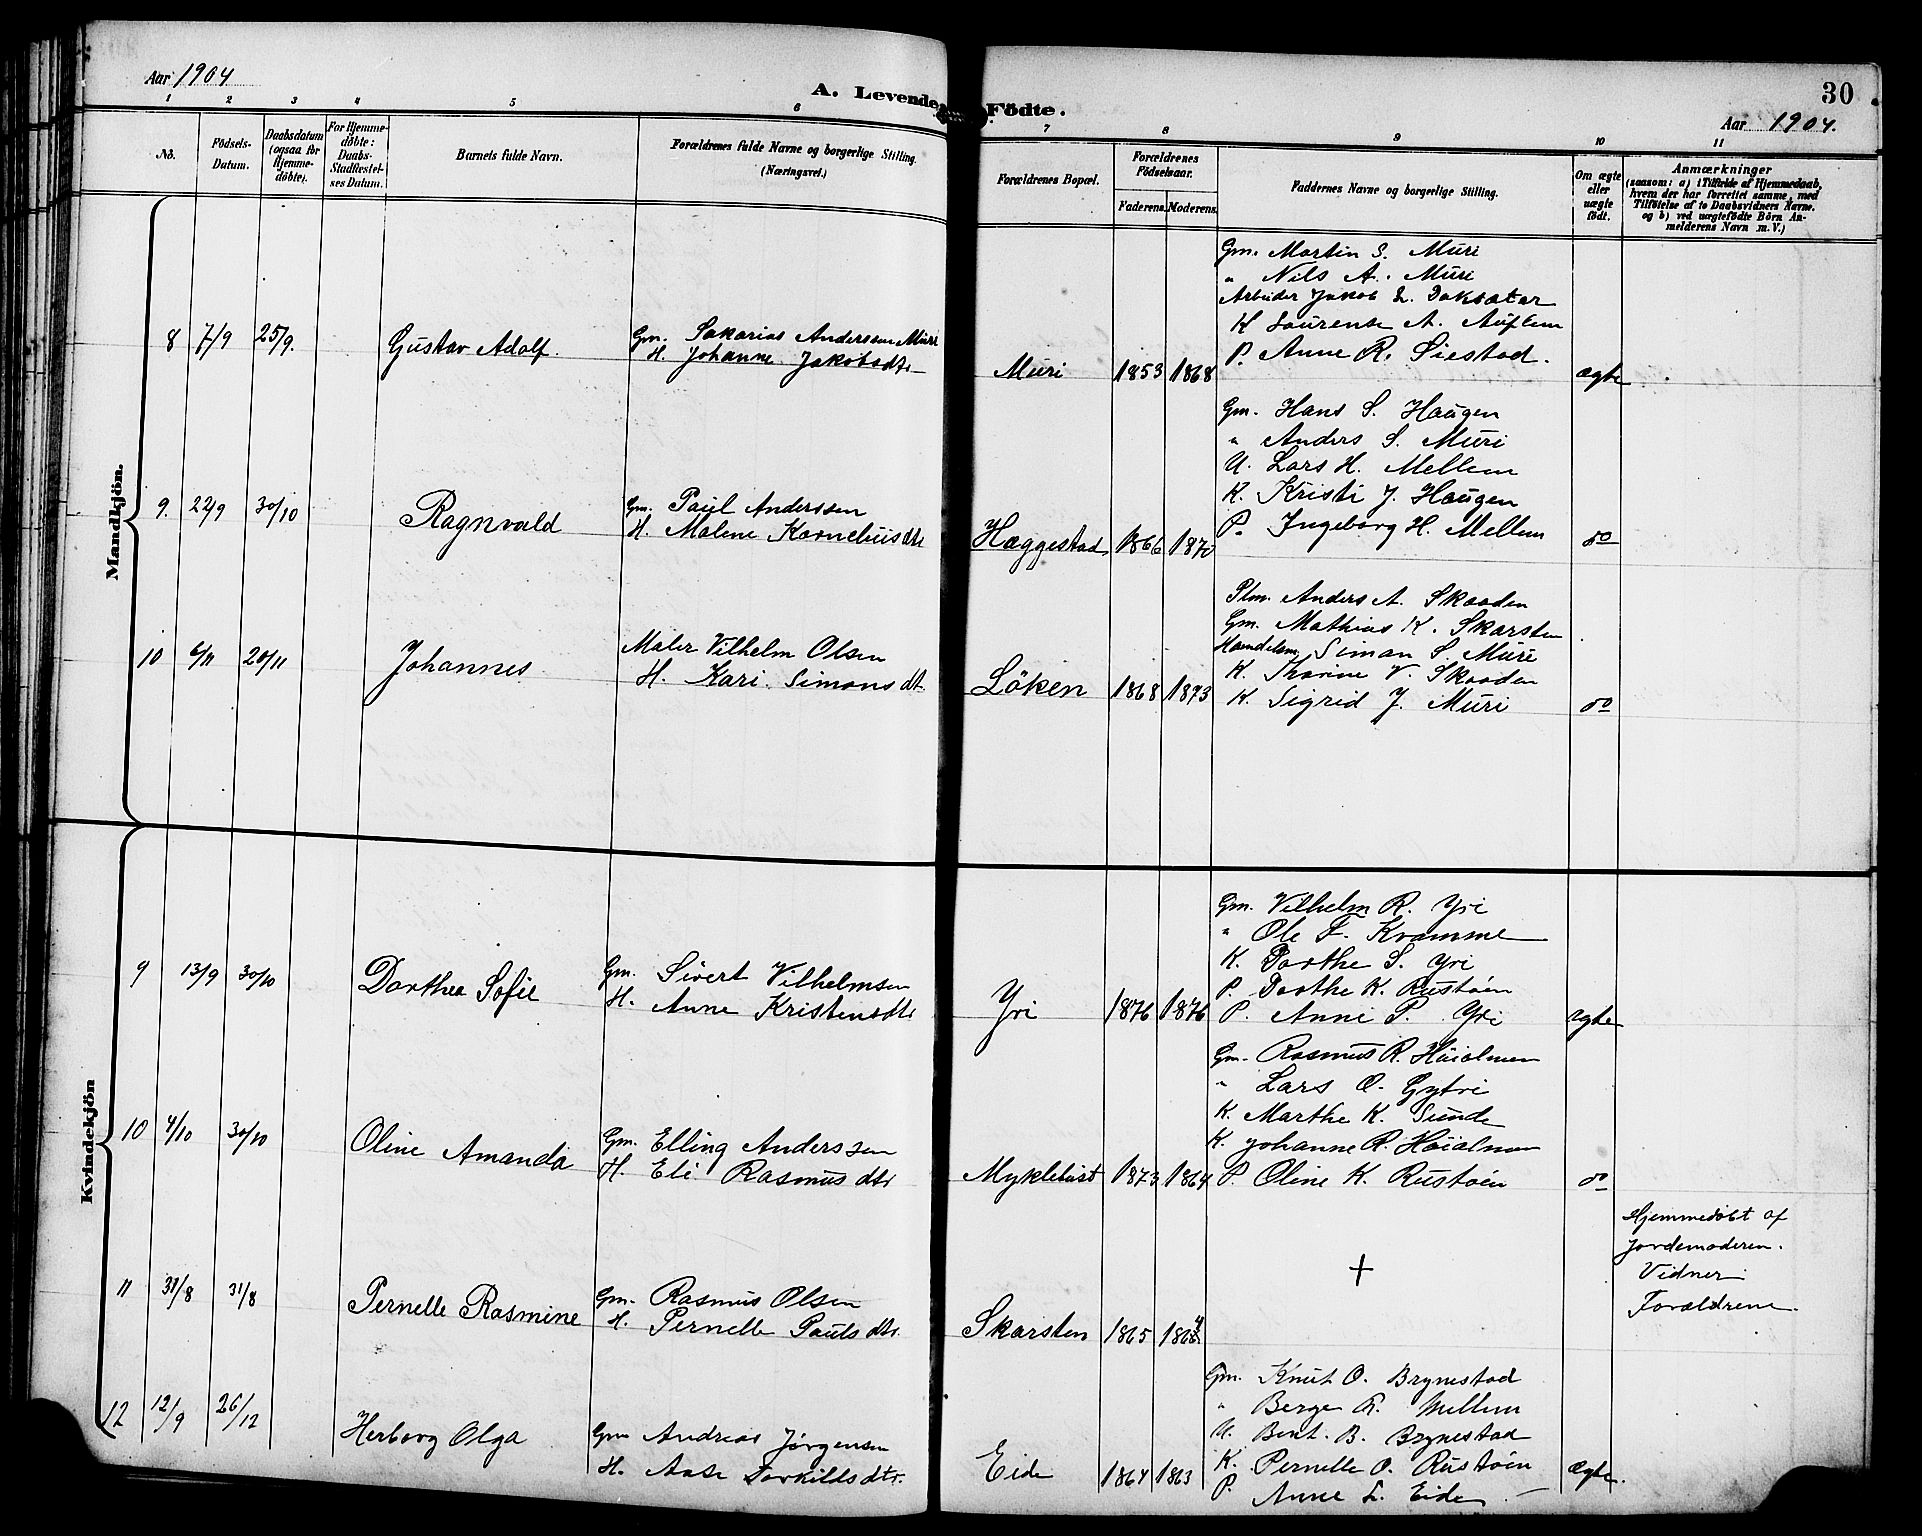 Aar 1904
A. Levende Födte.
30
Aar 1904.
1 2 3 4 5 6 7 8 9 10 11
No.
Födsels-Datum.
Daabsdatum (ogsaa for Hjemme-døbte).
For Hjemme-døbte: Daabs-Stadfæstel-ses Datum.
Barnets fulde Navn.
Forældrenes fulde Navne og borgerlige Stilling.
(Næringsvei.)
Forældrenes Bopæl.
Forældrenes Födselsaar.
Faderens. Moderens.
Faddernes Navne og borgerlige Stilling.
Om ægte eller uægte født.
Anmærkninger
(saasom: a) i Tilfælde af Hjemmedaab,
hvem der har forrettet samme, med
Tilföielse af to Daabsvidners Navne.
og b) ved uægtefødte Börn An-
melderens Navn m. V.)
Mandkjön.
8 7/9 25/9. Gustav Adolf.
Gm. Sakarias Anderssen Muri
H. Johanne Jakobsdtr
Muri 1853 1868
Gm. Martin S. Muri
" Nils A. Muri
Arbeider Jakob L. Daksæter
K Laurense A. Auflem
P. Anne R. Siestad.
ægte
9. 22/9 30/10 Ragnvald
Gm. Paul Anderssen
H. Malene Korneliusdtr
Hæggestad 1866 1870
Gm. Hans S. Haugen
" Anders S. Muri
U. Lars H. Mellem
K. Kristi J. Haugen
P. Ingeborg H. Mellem
do
10 6/11 20/11 Johannes
Maler Vilhelm Olsen
H. Kari Simonsdt.
Löken 1868 1873
Plm. Anders A. Skaaden
Gm. Mathias K. Skarsten
Handelsm. Simon S. Muri
K. Thorine V. Skaaden
K. Sigrid J. Muri
do
Kvindekjön
9 13/9 30/10 Dorthea Sofie
Gm. Sivert Vilhelmsen
H. Anne Kristensdtr
Yri 1876 1876
Gm. Vilhelm R. Yri
" Ole F. Kvamme
K. Dorthe S. Yri
P. Dorthe K. Rustöen
P. Anne P. Yri
ægte
10 4/10 30/10 Oline Amanda
Gm. Elling Anderssen
H. Eli Rasmusdtr
Myklebust 1873 1864
Gm. Rasmus R. Höialmen
" Lars O. Gytri
K. Marthe K. Sunde
K. Johanne R. Höialmen
P. Oline K. Rustöen
do
11 31/8 31/8 Pernelle Rasmine
Gm. Rasmus Olsen
H. Pernelle Paulsdtr.
Skarsten 1865
+
Hjemmedöbt af
Jordemoderen.
Vidner
Forældrene.
12 12/9 26/12 Herborg Olga
Gm Andreas Jørgensen
H. Aase Torkilsdtr.
Eide 1864 1863
Gm. Knut O. Brynestad
" Berge R. Mellem
U. Bent. B. Brynestad
K. Pernelle O. Rustöen
P. Anne L. Eide
Ægte.